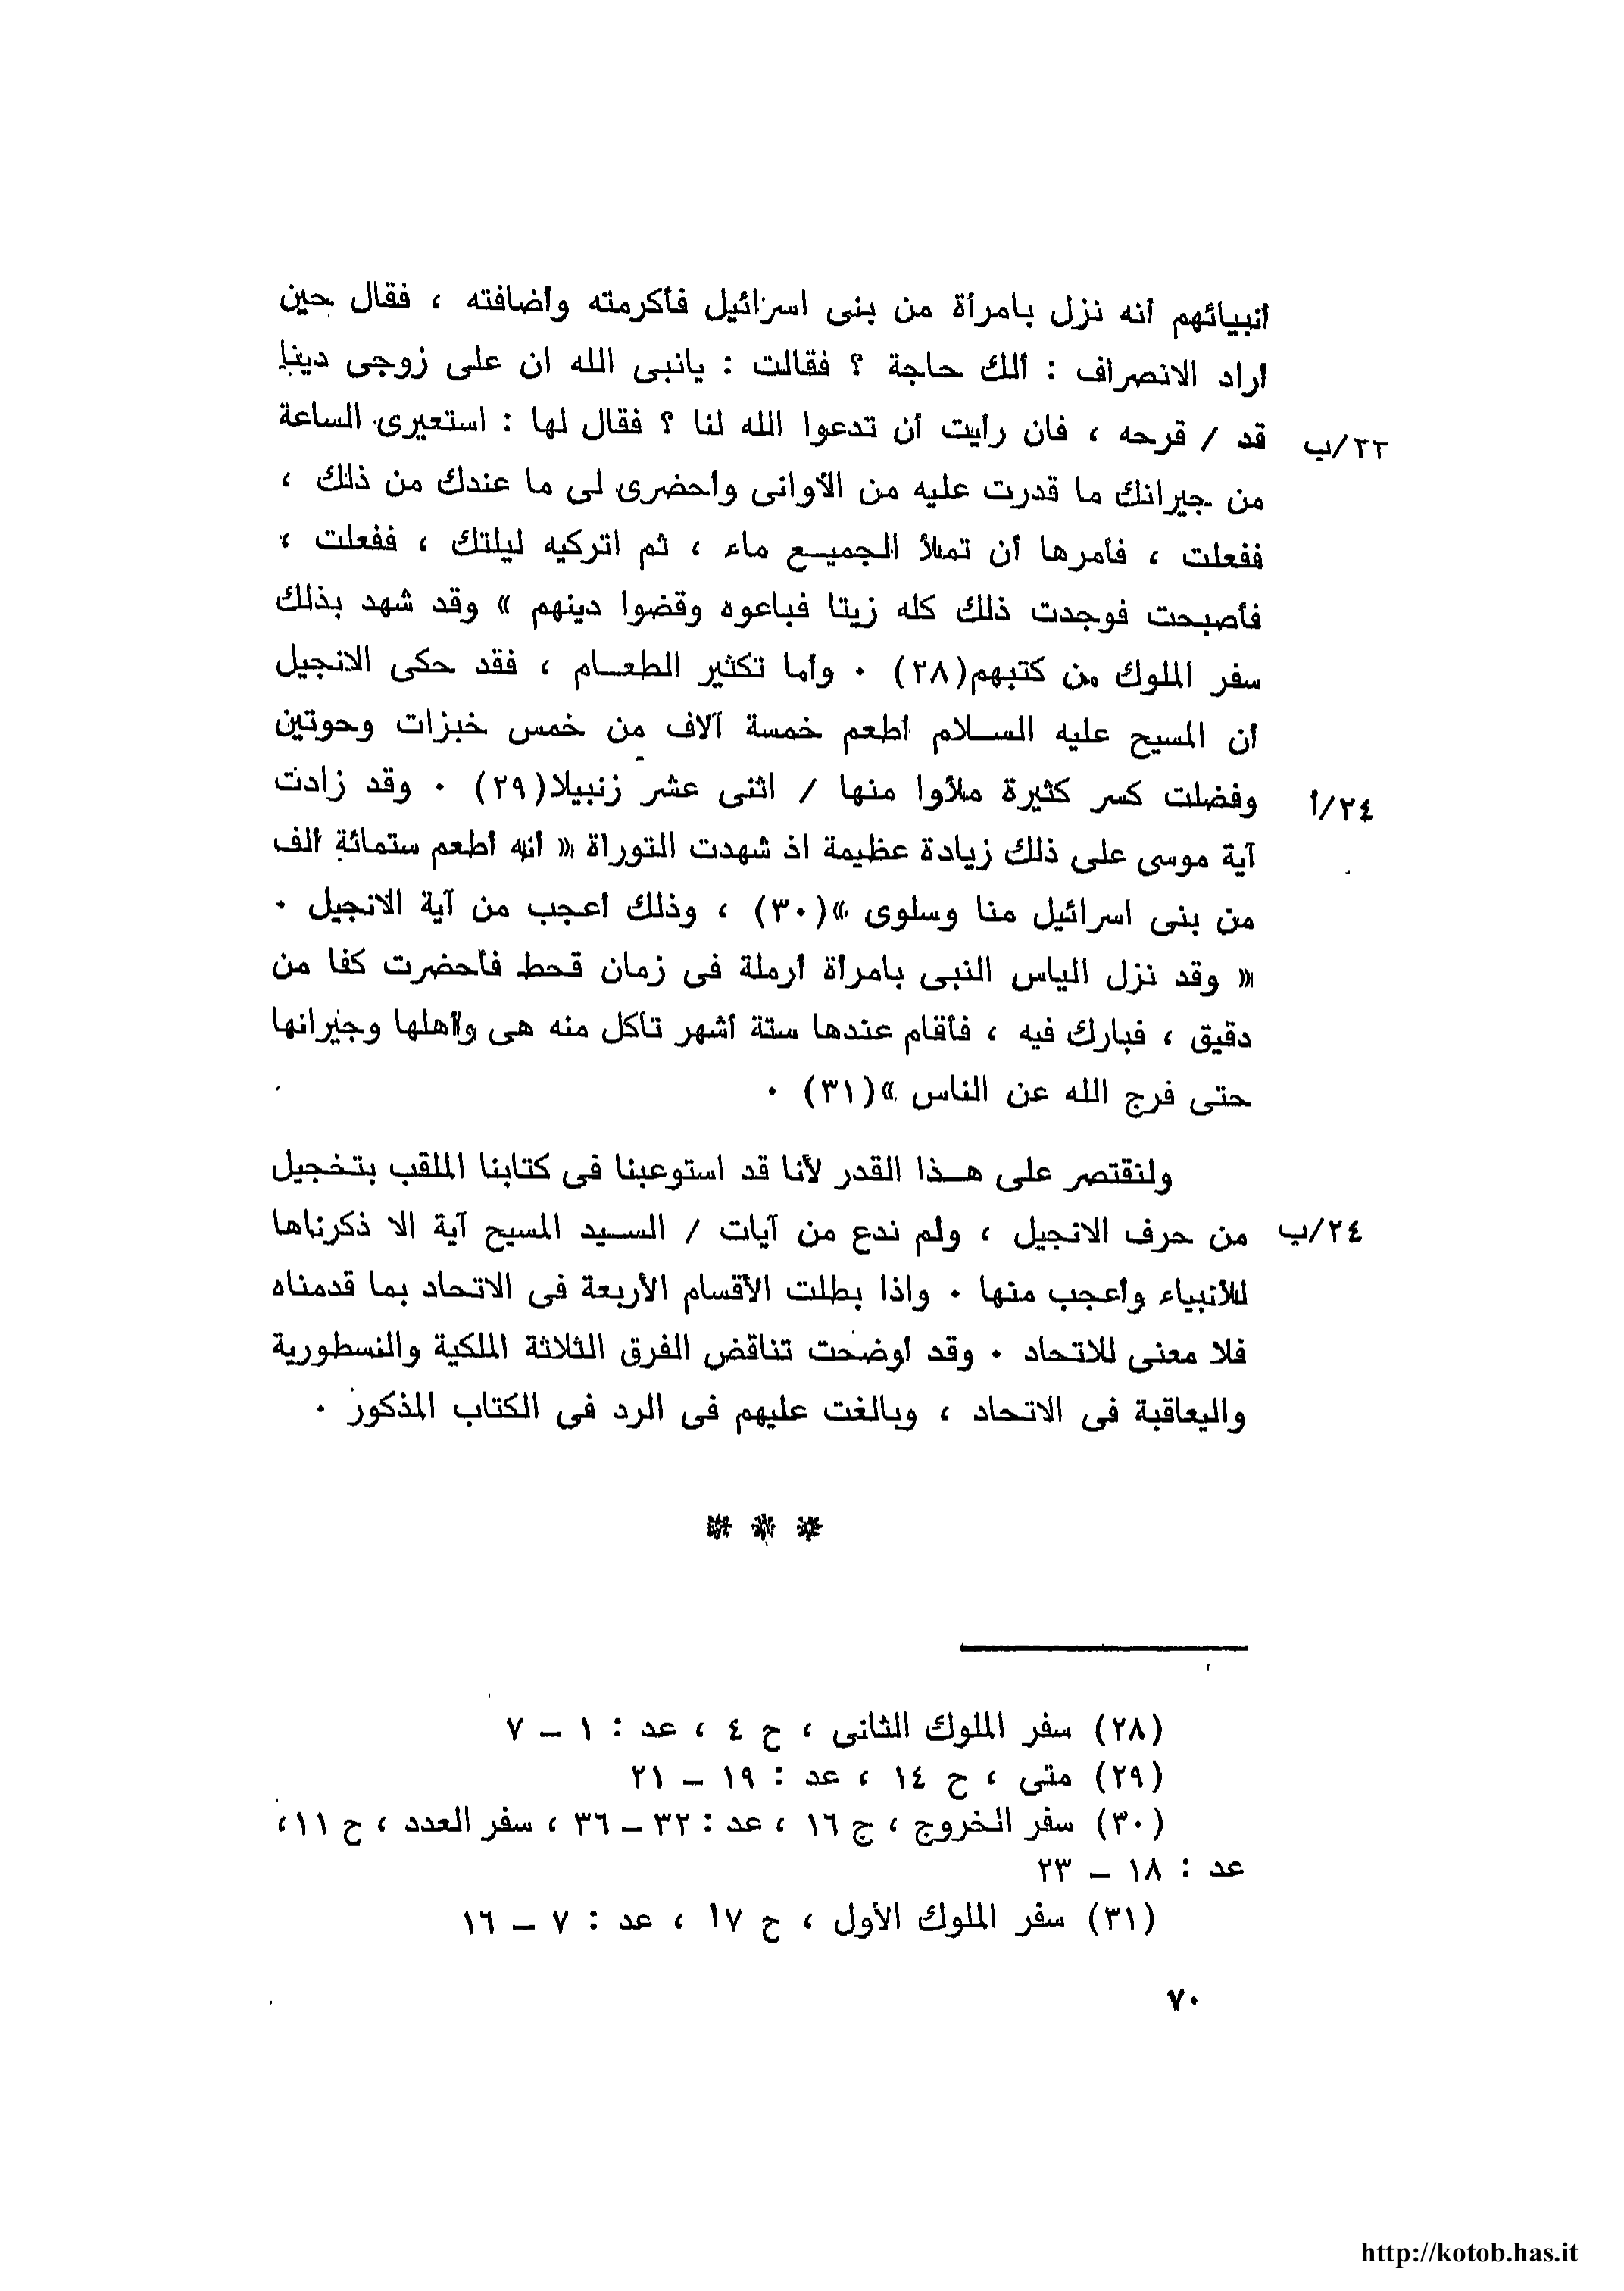 أنبيائهم أنه نزل بامرأة من بنى اسرائيل فأكرمته وأضافته ، فقال حين
أراد الانصراف : ألك حاجة ؟ فقالت : يانبى الله ان على زوجى دينا
٢٢/ب قد / قرحه ، فان رأيت أن تدعوا الله لنا ؟ فقال لها : استعيرى الساعة
من جيرانك ما قدرت عليه من الأوانى وأحضرى لى ما عندك من ذلك ،
ففعلت ، فأمرها أن تملأ الجميع ماء ، ثم اتركيه ليلتك ، ففعلت ،
فأصبحت فوجدت ذلك كله زيتا فباعوه وقضوا دينهم » وقد شهد بذلك
سفر الملوك من كتبهم(٢٨) ٠ وأما تكثير الطعام ، فقد حكى الانجيل
أن المسيح عليه السلام أطعم خمسة آلاف من خمس خبزات وحوتين
٢٤/أ وفضلت كسر كثيرة ملأوا منها / اثنى عشر زنبيلا(٢٩) ٠ وقد زادت
آية موسى على ذلك زيادة عظيمة اذ شهدت التوراة « أنه أطعم ستمائة ألف
من بنى اسرائيل منا وسلوى »(٣٠) ، وذلك أعجب من آية الانجيل ٠
« وقد نزل الياس النبى بامرأة أرملة فى زمان قحط فأحضرت كفا من
دقيق ، فبارك فيه ، فأقام عندها ستة أشهر تأكل منه هى وأهلها وجيرانها
حتى فرج الله عن الناس »(٣١) ٠
ولنقتصر على هذا القدر لأنا قد استوعبنا فى كتابنا الملقب بتخجيل
٢٤/ب من حرف الانجيل ، ولم ندع من آيات / السيد المسيح آية الا ذكرناها
للأنبياء وأعجب منها ٠ واذا بطلت الأقسام الأربعة فى الاتحاد بما قدمناه
فلا معنى للاتحاد ٠ وقد أوضحت تناقض الفرق الثلاثة الملكية والنسطورية
واليعاقبة فى الاتحاد ، وبالغت عليهم فى الرد فى الكتاب المذكور ٠
* * *
(٢٨) سفر الملوك الثانى ، ح ٤ ، عد : ١ – ٧
(٢٩) متى ، ح ١٤ ، عد : ١٩ – ٢١
(٣٠) سفر الخروج ، ج ١٦ ، عد : ٣٢ – ٣٦ ، سفر العدد ، ح ١١ ،
عد : ١٨ – ٢٣
(٣١) سفر الملوك الأول ، ح ١٧ ، عد : ٧ – ١٦
٧٠
http://kotob.has.it